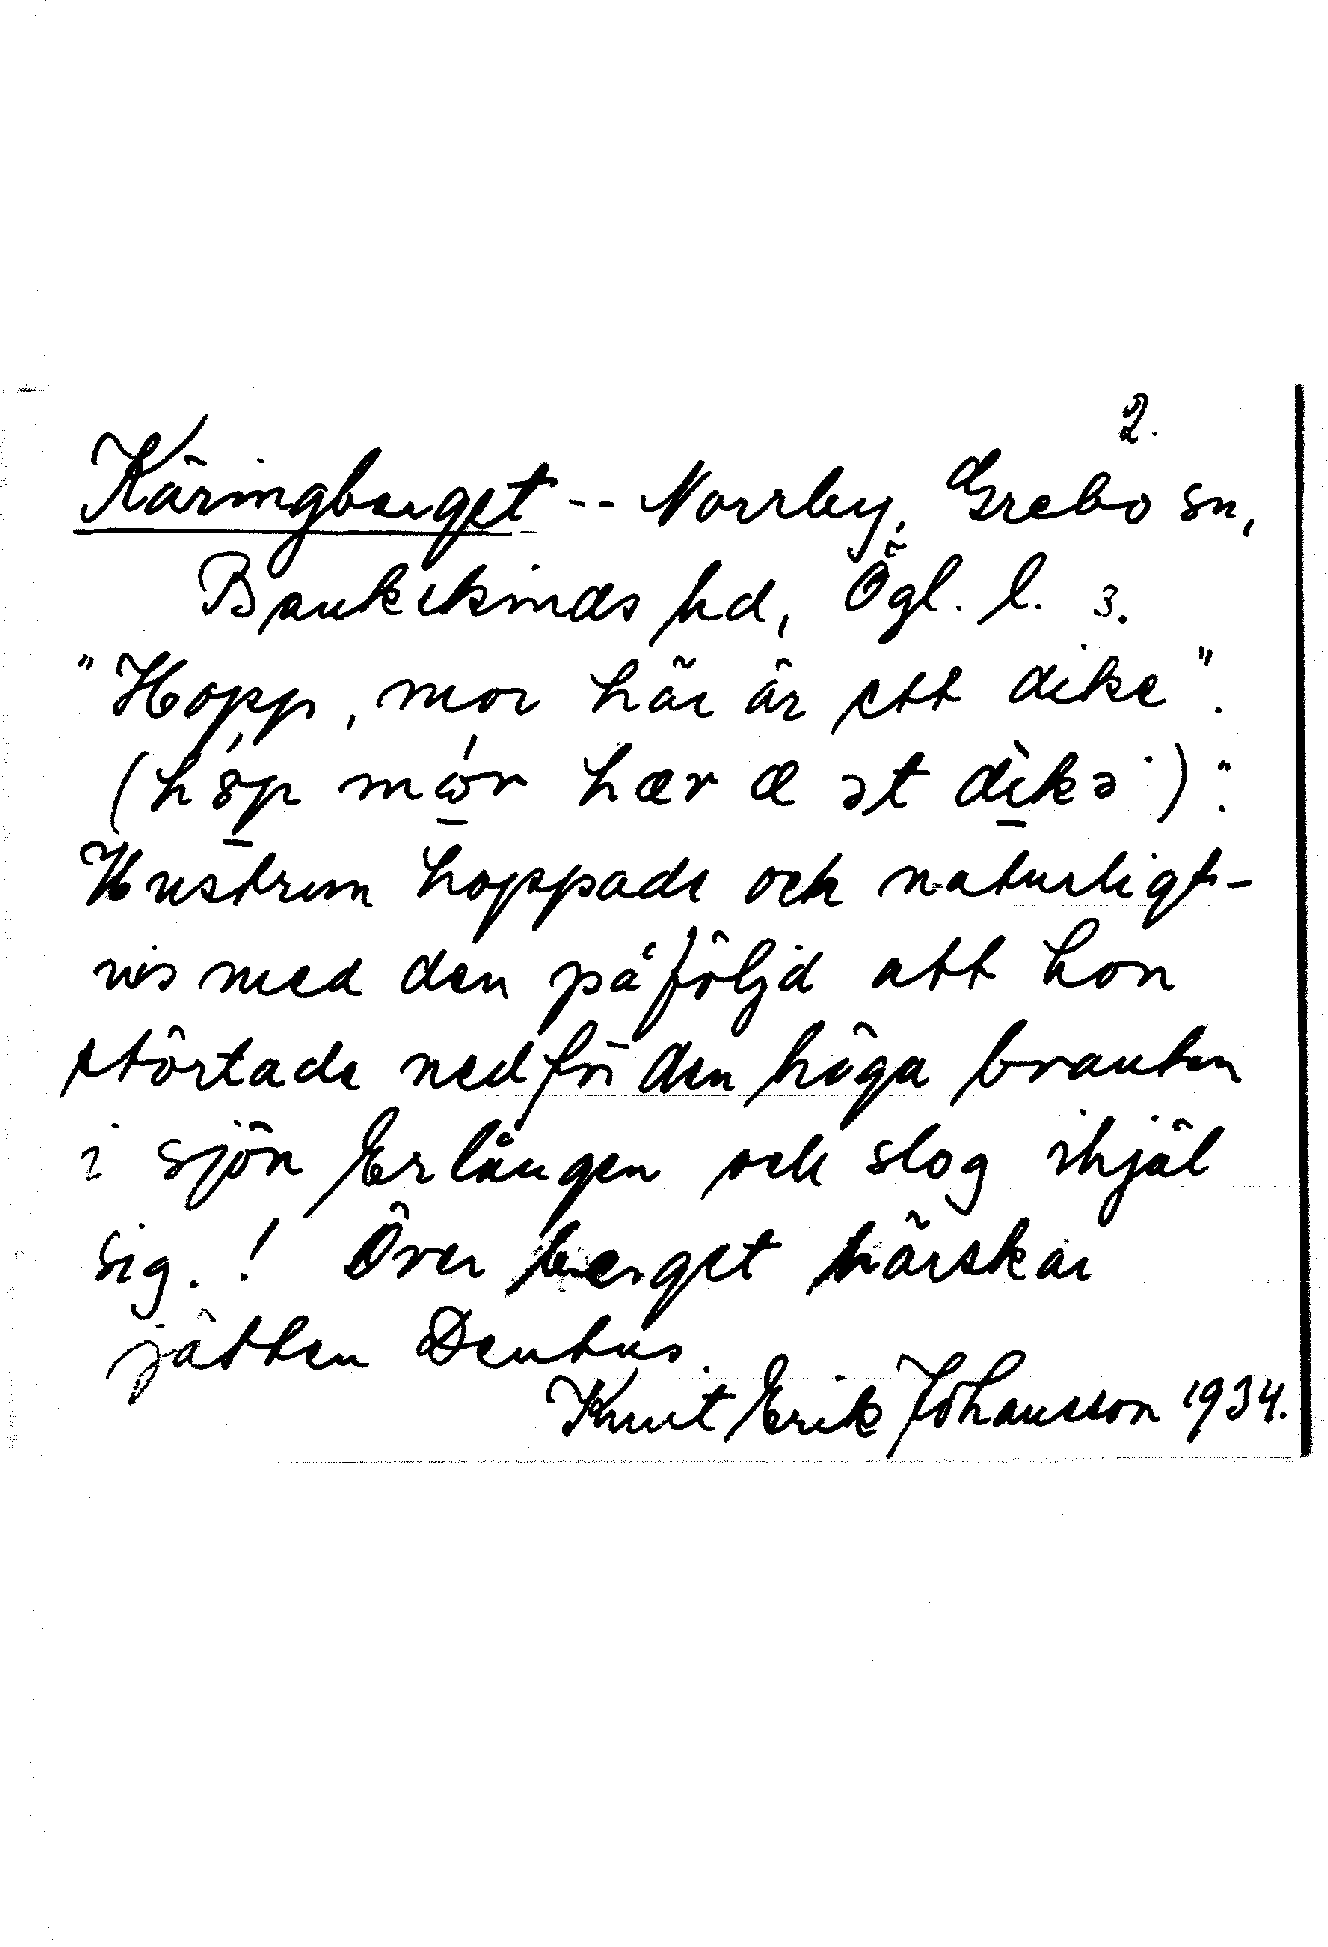 2.
Käringberget -- Norrby, Grebo sn,
Bankekinds hd, Ögl. l. 3.
"Hopp, mor här är ett dike".
(hóp mór hær æ ət dìkə).
Hustrun hoppade och naturligt-
vis med den påföljd att hon
störtade nedför den höga branten
i sjön Erlången och slog ihjäl
sig.! Över berget härskar
jätten Dentus.
Knut Erik Johansson 1934.